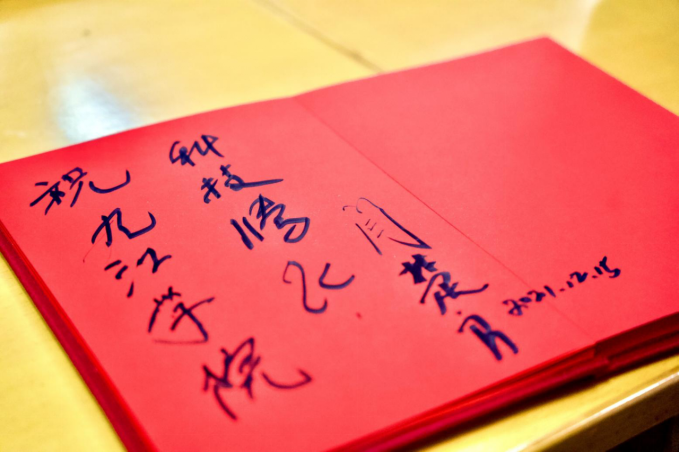 祝九江学院
科技腾飞
闫楚良
2021.12.15